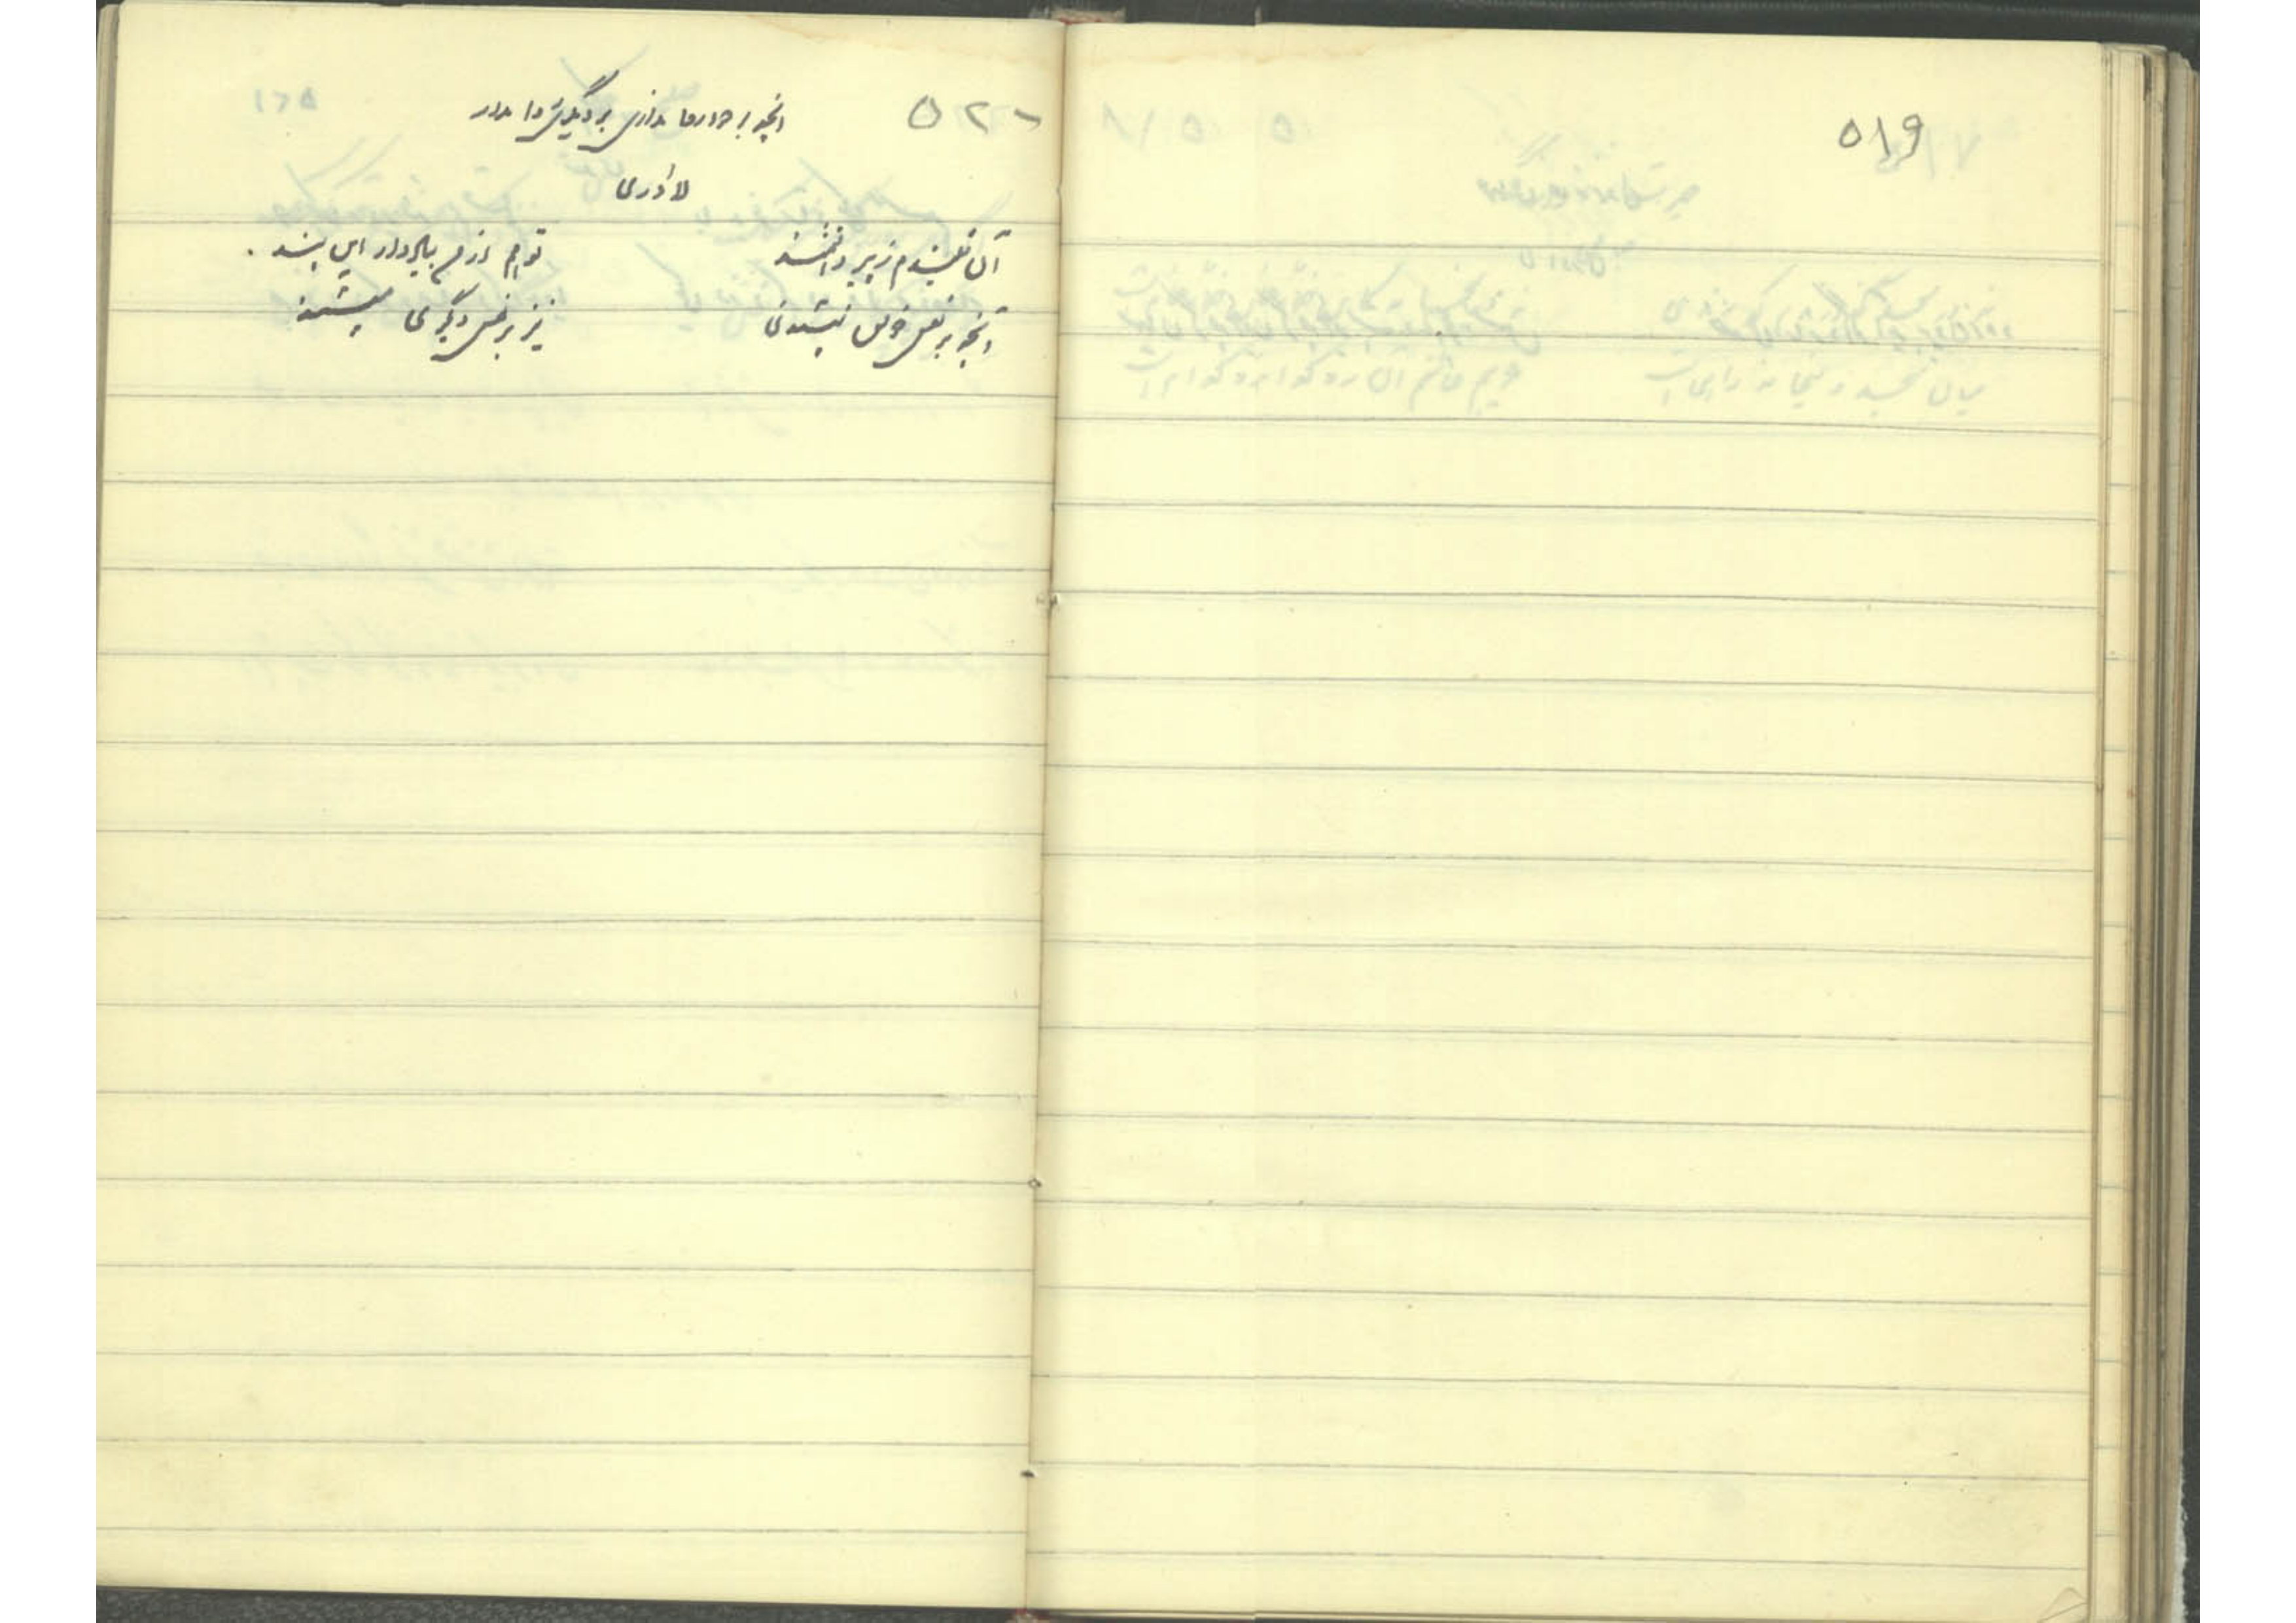 ۵۱۹
۵۲۰
آنچه بر خود روا نداری بر دیگران روا مدار
لا ادری
آن شنیدم ز پیر دانشمند تو هم از من به یاد دار این پند
آنچه بر نفس خویش نپسندی نیز بر نفس دیگری مپسند